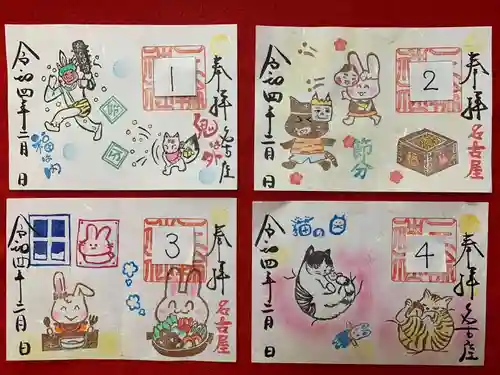 奉拝
1
令和四年二月 日
鬼は外
福は内
節
分
名古屋
奉拝
2
令和四年二月 日
節分
名古屋
奉拝
3
令和四年二月 日
名古屋
奉拝
4
猫の日
令和四年二月 日
名古屋